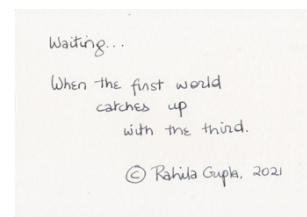 Waiting...
When the first world
catches up
with the third.
© Rahila Gupta, 2021